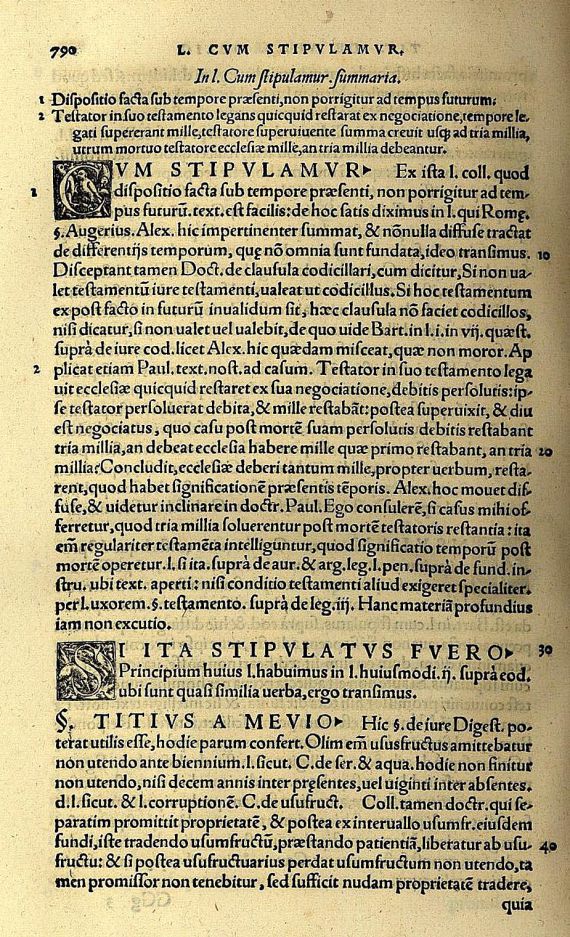 790 L. CVM STIPVLAMVR.
In l. Cum stipulamur. summaria.
1 Dispositio facta sub tempore præsenti, non porrigitur ad tempus futurum.
2 Testator in suo testamento legans quicquid restarat ex negociatione, tempore le
gati supererant mille, testatore superuiuente summa creuit usq; ad tria millia,
utrum mortuo testatore ecclesiæ mille, an tria millia debeantur.
CVM STIPVLAMVR Ex ista l. coll. quod
1 dispositio facta sub tempore præsenti, non porrigitur ad tem-
pus futurũ. text. est facilis: de hoc satis diximus in l. qui Romę.
§. Augerius. Alex. hic impertinenter summat, & nõnulla diffuse tractat
de differentijs temporum, quę nõ omnia sunt fundata, ideo transimus. 10
Disceptant tamen Doct. de clausula codicillari, cum dicitur, Si non ua-
let testamentũ iure testamenti, ualeat ut codicillus. Si hoc testamentum
ex post facto in futurũ inualidum sit, hæc clausula nõ faciet codicillos,
nisi dicatur, si non ualet uel ualebit, de quo uide Bart. in l. i. in vij. quæst.
suprà de iure cod. licet Alex. hic quædam misceat, quæ non moror. Ap
2 plicat etiam Paul. text. nost. ad casum. Testator in suo testamento lega
uit ecclesiæ quicquid restaret ex sua negociatione, debitis persolutis: ip-
se testator persoluerat debita, & mille restabãt: postea superuixit, & diu
est negociatus, quo casu post mortẽ suam persolutis debitis restabant
tria millia, an debeat ecclesia habere mille quæ primo restabant, an tria 20
millia: Concludit, ecclesiæ deberi tantum mille, propter uerbum, resta-
rent, quod habet significationẽ præsentis tẽporis. Alex. hoc mouet dif-
fuse, & uidetur inclinare in doctr. Paul. Ego consulerẽ, si casus mihi of-
ferretur, quod tria millia soluerentur post mortẽ testatoris restantia: ita
em̃ regulariter testamẽta intelliguntur, quod significatio temporũ post
mortẽ operetur. l. si ita. suprà de aur. & arg. leg. l. pen. suprà de fund. in-
stru. ubi text. aperti: nisi conditio testamenti aliud exigeret specialiter.
per l. uxorem. §. testamento. suprà de leg. iij. Hanc materiã profundius
iam non excutio.
SI ITA STIPVLATVS FVERO 30
Principium huius l. habuimus in l. huiusmodi. ij. suprà eod.
ubi sunt quasi similia uerba, ergo transimus.
§. TITIVS A MEVIO Hic §. de iure Digest. po-
terat utilis esse, hodie parum confert. Olim em̃ ususfructus amittebatur
non utendo ante biennium. l. sicut. C. de ser. & aqua. hodie non finitur
non utendo, nisi decem annis inter pręsentes, uel uiginti inter absentes.
d. l. sicut. & l. corruptionẽ. C. de usufruct. Coll. tamen doctr. qui se-
paratim promittit proprietatẽ, & postea ex interuallo usumfr. eiusdem
fundi, iste tradendo usumfructũ, præstando patientiã, liberatur ab usu-
fructu: & si postea usufructuarius perdat usumfructum non utendo, ta 40
men promissor non tenebitur, sed sufficit nudam proprietatẽ tradere,
quia